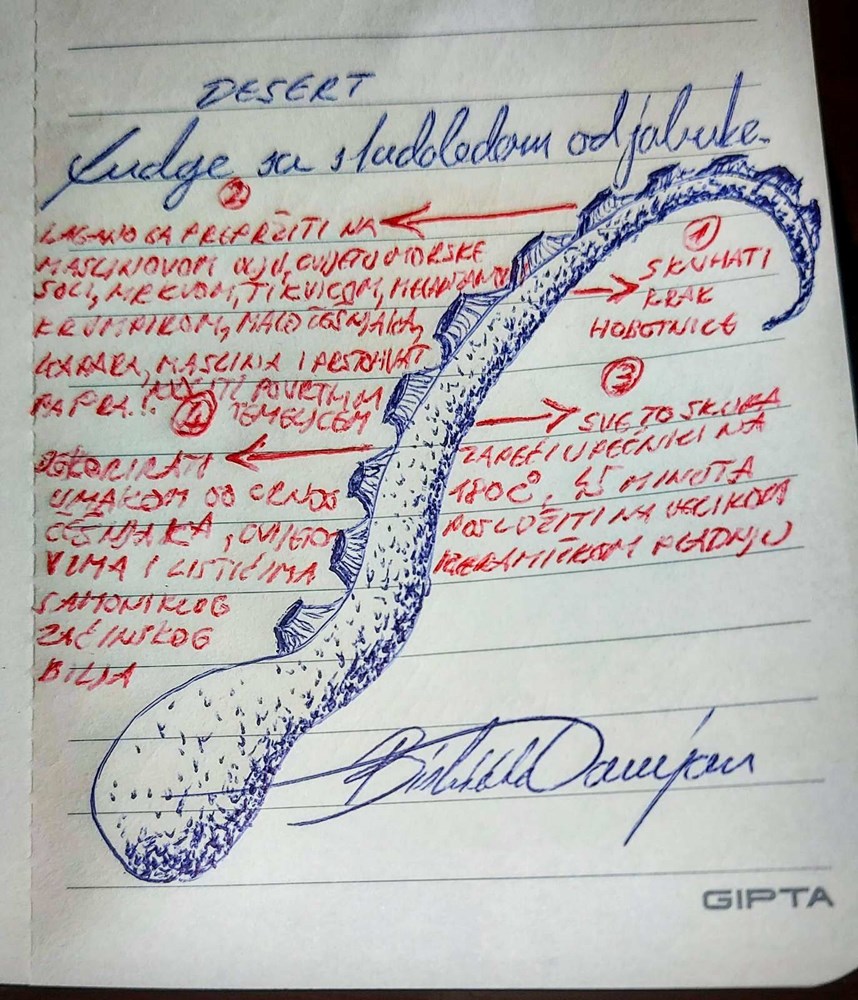 DESERT
Fudge sa sladoledom od jabuke.
②
LAGANO GA PREPRŽITI NA
MASLINOVOM ULJU, CVIJETU MORSKE
SOLI, MRKVOM, TIKVICOM, MELANZANOM
KRUMPIROM, MALO ČEŠNJAKA,
KAPARA, MASLINA I PRSTOHVAT
PAPRA... POVRTNIM
TEMELJCEM
①
SKUHATI
KRAK
HOBOTNICE
③
SVE TO SKUPA
ZAPEĆI U PEĆNIKI NA
180C°, 45 MINUTA
POSLOŽITI NA VELIKOM
KERAMIČKOM PLADNJU
④
DEKORIRATI
UMAKOM OD CRNOG
ČEŠNJAKA, CVIJETO
VIMA I LISTIĆIMA
SAMONIKLOG
ZAČINSKOG
BILJA
Damjan
GIPTA